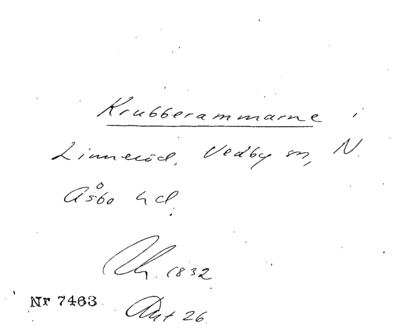 Krubberammarne i
Linneröd, Vedby sn, N.
Åsbo hd.
Rh. 1832
Nr 7463
Akt 26